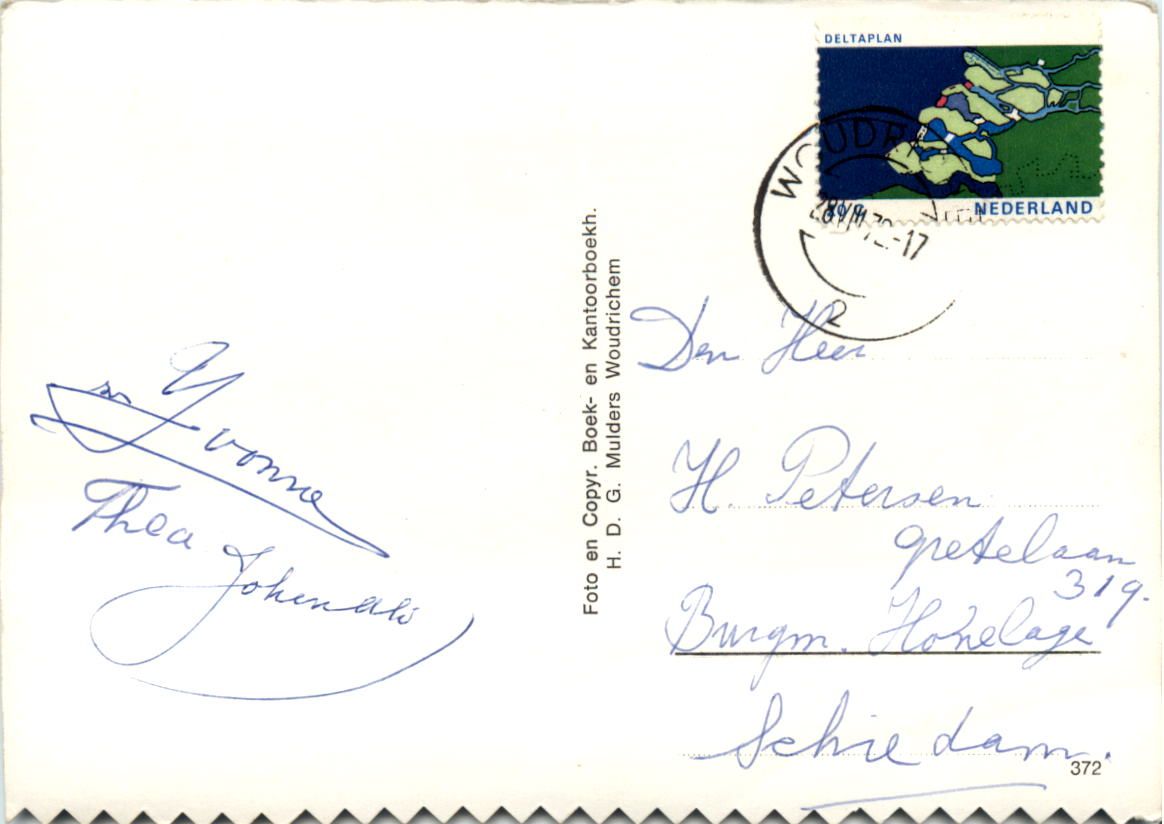 DELTAPLAN
NEDERLAND
2
Foto en Copyr. Boek- en Kantoorboekh.
H. D. G. Mulders Woudrichem
Yvonne
Thea
Den Heer
H. Petersen
Gretelaan
319.
Burgm. Honelage
Schiedam.
372